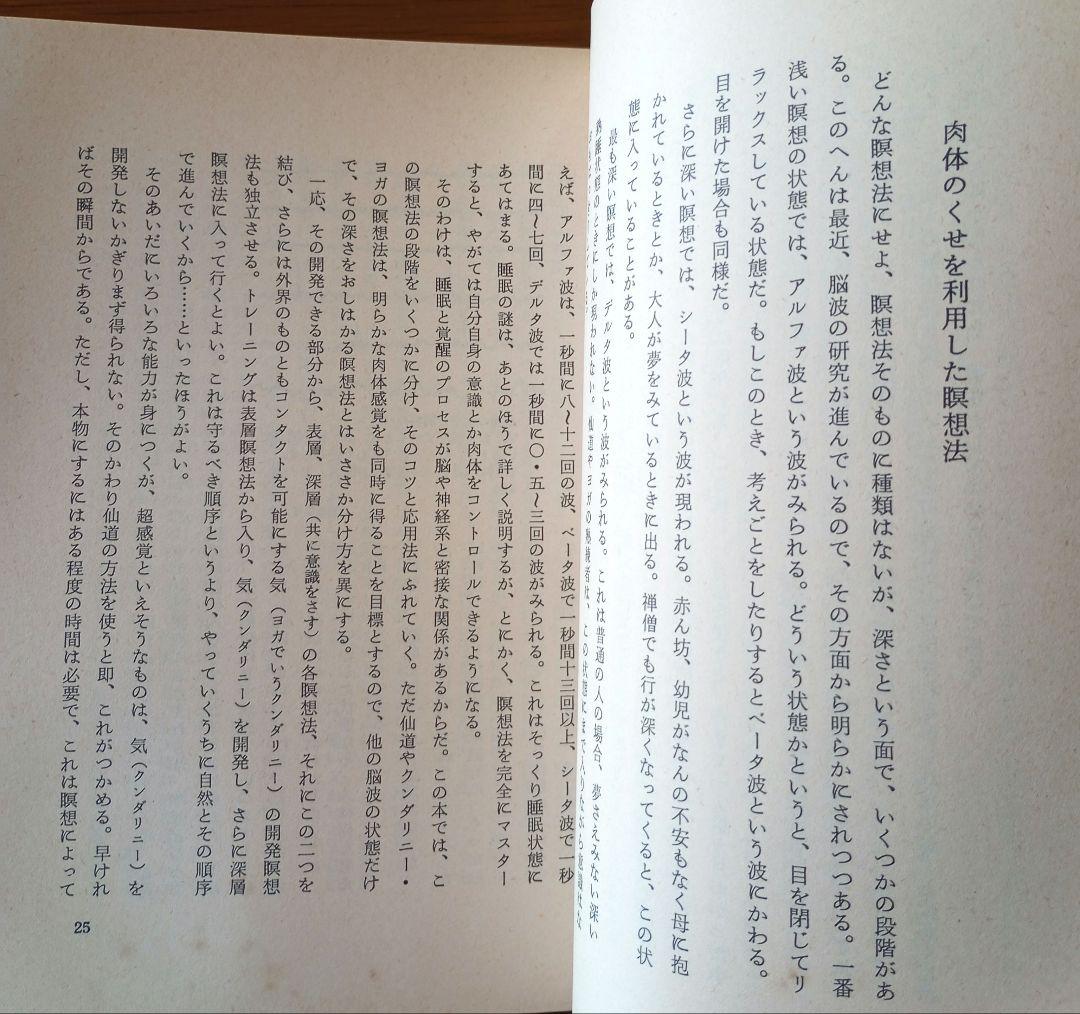 肉体のくせを利用した瞑想法
どんな瞑想法にせよ、瞑想法そのものに種類はないが、深さという面で、いくつかの段階があ
る。このへんは最近、脳波の研究が進んでいるので、その方面から明らかにされつつある。一番
浅い瞑想の状態では、アルファ波という波がみられる。どういう状態かというと、目を閉じてリ
ラックスしている状態だ。もしこのとき、考えごとをしたりするとベータ波という波にかわる。
目を開けた場合も同様だ。
さらに深い瞑想では、シータ波という波が現われる。赤ん坊、幼児がなんの不安もなく母に抱
かれているときとか、大人が夢をみているときに出る。禅僧でも行が深くなってくると、この状
態に入っていることがある。
最も深い瞑想では、デルタ波という波がみられる。これは普通の人の場合、夢さえみない深い
熟睡状態のときにしか現われない。仙道やヨガの熟練者は、この状態にまで入りながら意識はな
えば、アルファ波は、一秒間に八〜十二回の波、ベータ波で一秒間十三回以上、シータ波で一秒
間に四〜七回、デルタ波では一秒間に〇・五〜三回の波がみられる。これはそっくり睡眠状態に
あてはまる。睡眠の謎は、あとのほうで詳しく説明するが、とにかく、瞑想法を完全にマスター
すると、やがては自分自身の意識とか肉体をコントロールできるようになる。
そのわけは、睡眠と覚醒のプロセスが脳や神経系と密接な関係があるからだ。この本では、こ
の瞑想法の段階をいくつかに分け、そのコツと応用法にふれていく。ただ仙道やクンダリニー・
ヨガの瞑想法は、明らかな肉体感覚をも同時に得ることを目標とするので、他の脳波の状態だけ
で、その深さをおしはかる瞑想法とはいささか分け方を異にする。
一応、その開発できる部分から、表層、深層（共に意識をさす）の各瞑想法、それにこの二つを
結び、さらには外界のものともコンタクトを可能にする気（ヨガでいうクンダリニー）の開発瞑想
法も独立させる。トレーニングは表層瞑想法から入り、気（クンダリニー）を開発し、さらに深層
瞑想法に入って行くとよい。これは守るべき順序というより、やっていくうちに自然とその順序
で進んでいくから……といったほうがよい。
そのあいだにいろいろな能力が身につくが、超感覚といえそうなものは、気（クンダリニー）を
開発しないかぎりまず得られない。そのかわり仙道の方法を使うと即、これがつかめる。早けれ
ばその瞬間からである。ただし、本物にするにはある程度の時間は必要で、これは瞑想によって
25